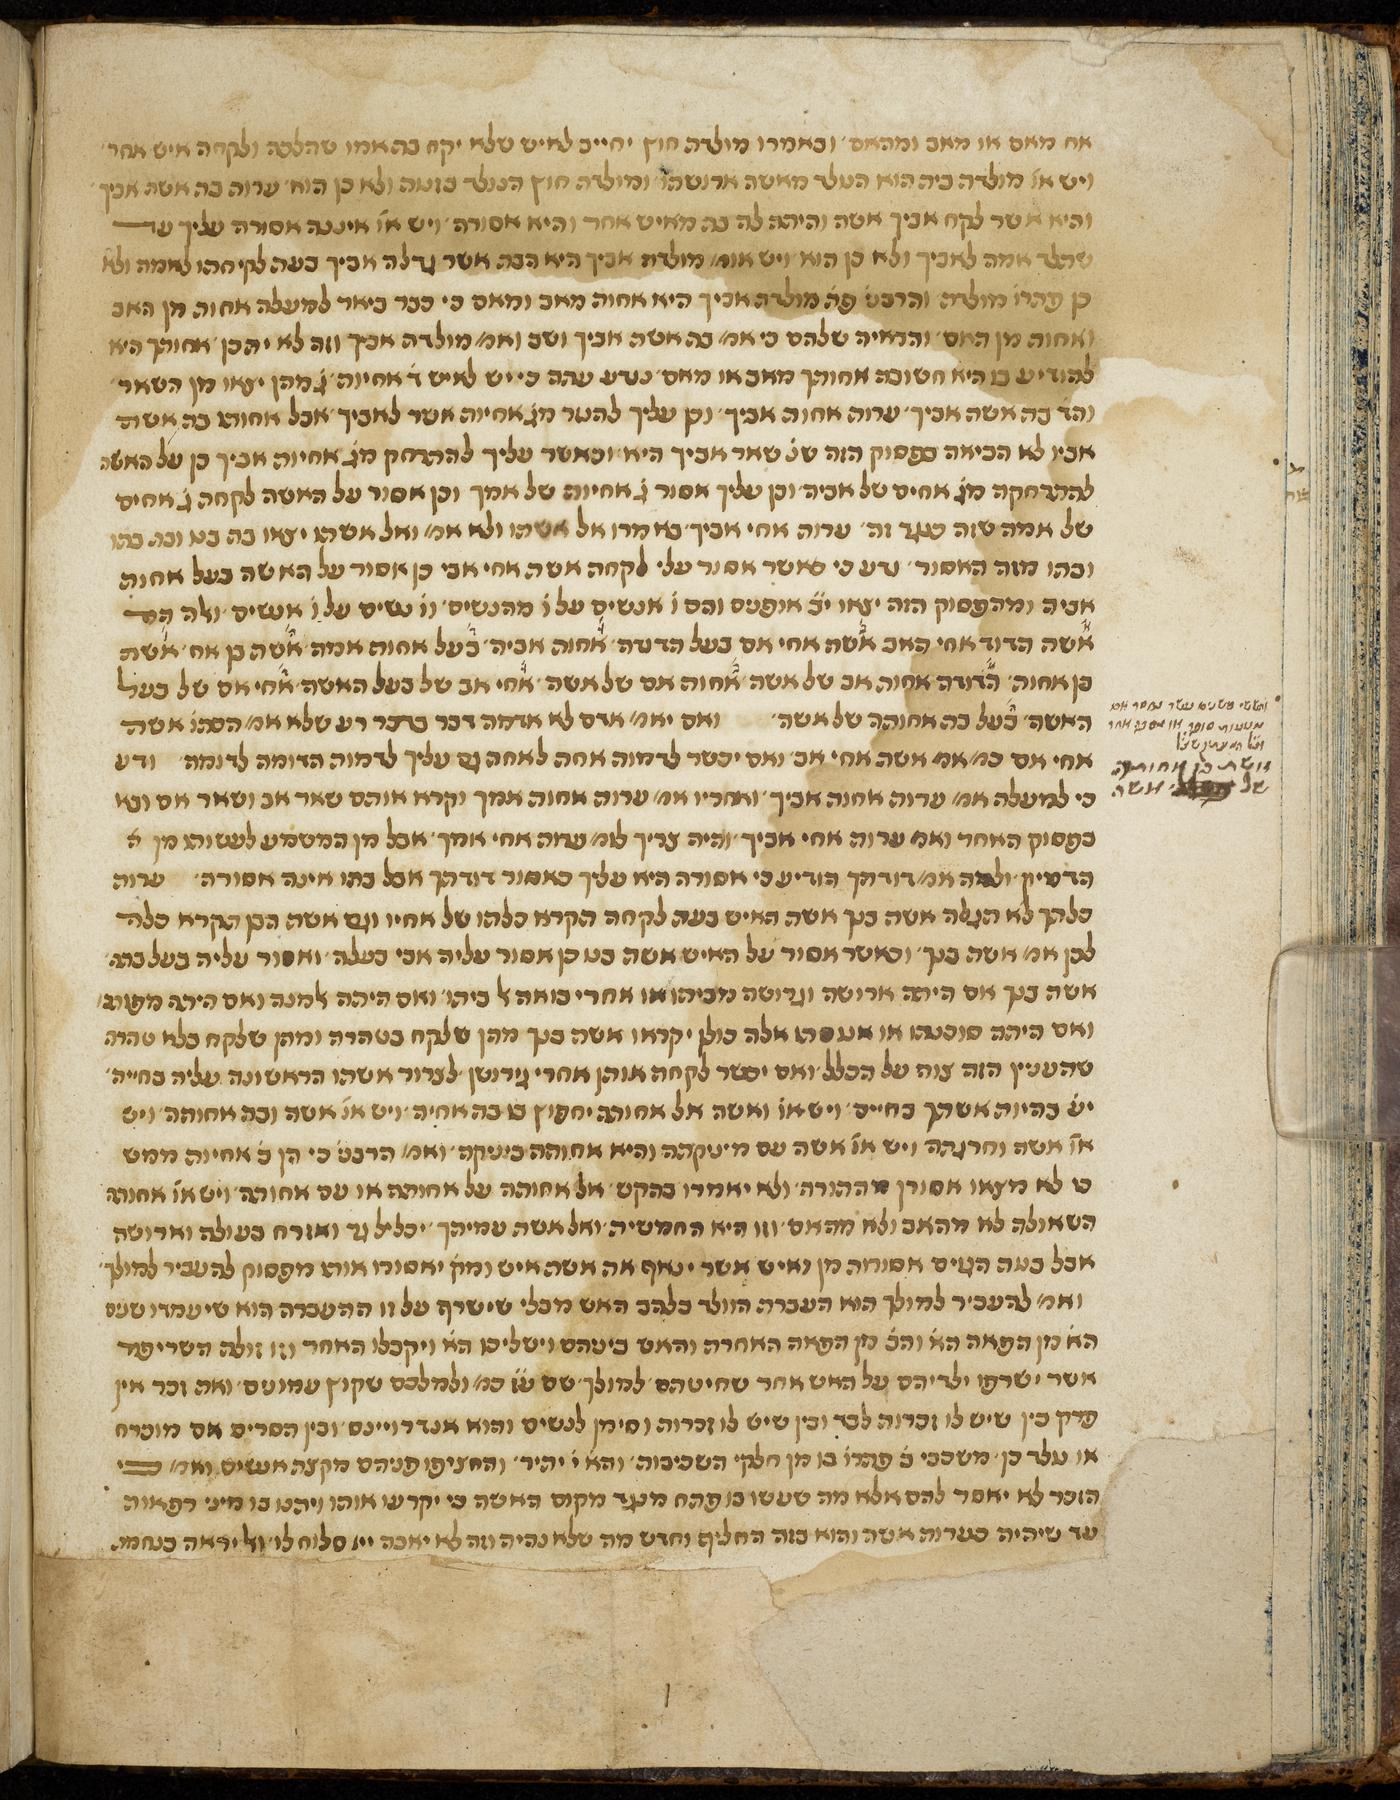 אח מאם או מאב ומהאם׳ ובאמרו מולדת חוץ יחייב לאיש שלא יקח בת אמו שהלכה ולקחה איש אחר׳
ויש או׳ מולדת בית הוא הנולד מאשה ארושה׳ ומולדת חוץ הנולד בזנות ולא כן הוא׳ ערות בת אשת אביך
והיא אשר לקח אביך אשה והיתה לה בת מאיש אחר והיא אסורה׳ ויש או׳ איננה אסורה עליך עד
שתלד אמה לאביך ולא כן הוא׳ ויש אומ׳ מולדת אביך היא הבת אשר גדלה אביך בעת לקיחתו לאמה ולא
כן פתרו׳ מולדת והרבנ׳ פת׳ מולדת אביך היא אחות מאב ומאם כי כבר ביאר למעלה אחות מן האב
ואחות מן האם׳ והראיה שלהם כי אמ׳ בת אשת אביך ושב ואמ׳ מולדת אביך וזה לא יתכן׳ אחותך היא
להודיע כי היא חשובה אחותך מאב או מאם׳ נדע עתה כי יש לאיש ד׳ אחיות׳ ג׳ מהן יצאו מן השאר׳
והד׳ בת אשת אביך׳ ערות אחות אביך׳ וכן עליך להנזר מג׳ אחיות אשר לאביך׳ אבל אחותו בת אשת
אביו לא הביאה בפסוק הזה שנ׳ שאר אביך היא׳ וכאשר עליך להתרחק מג׳ אחיות אביך כן על האשה
להתרחקה מג׳ אחים של אביה׳ וכן עליך אסור ג׳ אחיות של אמך וכן אסור על האשה לקחת ג׳ אחים
של אמה שזה כנגד זה׳ ערות אחי אביך׳ באמרו אל אשתו ולא אמ׳ ואל אשתו יצאו בת בנו ובת בתו
ובתו מזה האסור׳ נדע כי כאשר אסור עלי לקחת אשת אחי אבי כן אסור על האשה בעל אחות
אביה ומהפסוק הזה יצאו י״ב אופנים והם ו׳ אנשים על ו׳ מהנשים׳ וו׳ נשים על ו׳ אנשים׳ ולה הם
אשת הדוד אחי האב אשת אחי אם בעל הדודה׳ אחות אביה׳ בעל אחות אמה׳ אשת בן אח׳ אשת
בן אחות׳ הדודה׳ אחות אב של אשה׳ אחות אם של אשה׳ אחי אב של בעל האשה׳ אחי אם של בעל
האשה׳ בעל בת אחותה של אשה׳ ואם יאמ׳ אדם לא אדמה דבר בדבר רע שלא אמ׳ הכתו׳ אשת
אחי אם כמ׳ אמ׳ אשת אחי אב׳ ואם יכשר לדמות אחת לאחת גם עליך לדמות הדומה לדומה׳ ודע
כי למעלה אמ׳ ערות אחות אביך׳ ואחריו אמ׳ ערות אחות אמך וקרא אותם שאר אב ושאר אם ובא
בפסוק האחר ואמ׳ ערות אחי אביך׳ והיה צריך לומ׳ ערות אחי אמך׳ אבל מן המשמע לעשותו מן
הדמיון׳ ולמה אמ׳ דודתך הודיע כי אסורה היא עליך כאסור דודתך אבל בתו אינה אסורה׳ ערות
כלתך לא תגלה אשת בנך אשת האיש בעת לקחה תקרא כלתו של אחיו וגם אשת הבן תקרא כלה
לכן אמ׳ אשת בנך׳ וכאשר אסור על האיש אשת בנו כן אסור עליה אבי בעלה׳ ואסור עליה בעל בתה׳
אשת בנך אם היתה ארושה וגרושה מביתו או אחרי בואה אל ביתו׳ ואם היתה אלמנה ואם היתה
ואם היתה סוכנתו או אלה כולן יקראו אשת בנך מהן שלקח בטהרה ומהן שלקח בלא טהרה
שהענין הזה צוה על הכלל׳ ואם יכשר לקחת אותן אחרי גירושן׳ לצרור אשתו הראשונה עליה בחייה׳
יש׳ בהיות אשתך בחיים׳ ויש או׳ ואשה אל אחותה יחפוץ בו בת אחיה׳ ויש או׳ אשה ובת אחותה׳ ויש
או׳ אשה וחרגתה׳ ויש או׳ אשה עם מיניקתה והיא אחותה ביניקה׳ ואמ׳ הרבנ׳ כי הן ב׳ אחיות ממש
כי לא מצאו אסורן מהתורה׳ ולא יאמרו בהקש׳ אל אחותה על אחותה או עם אחותה׳ ויש או׳ אחותה
השאולה לא מהאב ולא מהאם׳ וזו היא החמשית׳ ואל אשת עמיתך׳ יכליל גר ואזרח בעולה וארושה
אבל בנות הגוים אסורות מן ואיש אשר ינאף את אשת איש ומק׳ יאסורו אותו מפסוק להעביר למולך׳
ואמ׳ להעביר למולך הוא העברת הוולד בלהב האש מבלי שישרף על זו ההעברה הוא שיעמדו שנים
הא׳ מן הפאה הא׳ והב׳ מן הפאה האחרת והאש ביניהם וישליכו הא׳ ויקבלו האחר וזו זולת השריפה
אשר ישרפו ילדיהם על האש אחר שחיטתם׳ למולך׳ שם ע״ז כמ׳ ולמלכם שקוץ עמונים׳ ואת זכר אין
פרק בין שיש לו זכרות לבד ובין שיש לו זכרות וסימן לנשים והוא אנדרויינס׳ ובין הסריס אם מוכרח
או נולד כן׳ משכבי ב׳ פתרו׳ בו מן חלקי השכיבות׳ והא׳ י׳ יתיר׳ והחציפו פניהם מקצת אנשים ואמ׳ כי
הזכר לא יאסר להם אלא מה שעשו בו פתח מנגד מקום האשה כי יקרעו אותו ויתנו בו מיני רפאות
עד שיהיה כערות אשה והוא בזה החליף וחדש מה שלא נהיה וזה לא יאבה ייי סלוח לו׳ ואל יראה בנחמה